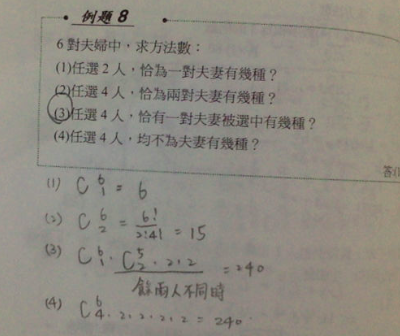 例題 8
6 對夫婦中，求方法數：
(1)任選 2 人，恰為一對夫妻有幾種？
(2)任選 4 人，恰為兩對夫妻有幾種？
(3)任選 4 人，恰有一對夫妻被選中有幾種？
(4)任選 4 人，均不為夫妻有幾種？
答:
(1) C⁶₁ = 6
(2) C⁶₂ = 6!/2!4! = 15
(3) C⁶₁ · C⁵₂ · 2 · 2 = 240
餘兩人不同時
(4) C⁶₄ · 2 · 2 · 2 · 2 = 240